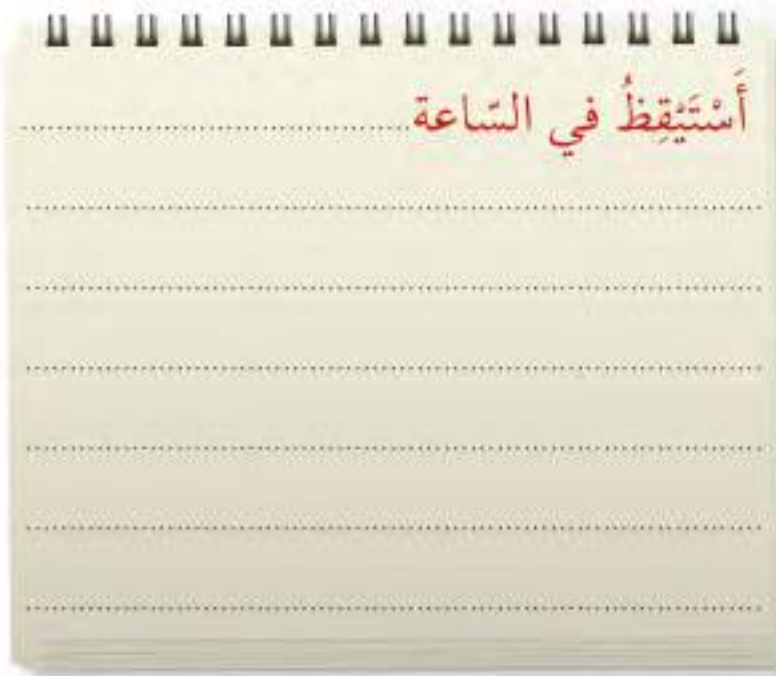 أَسْتَيْقِظُ في السّاعة